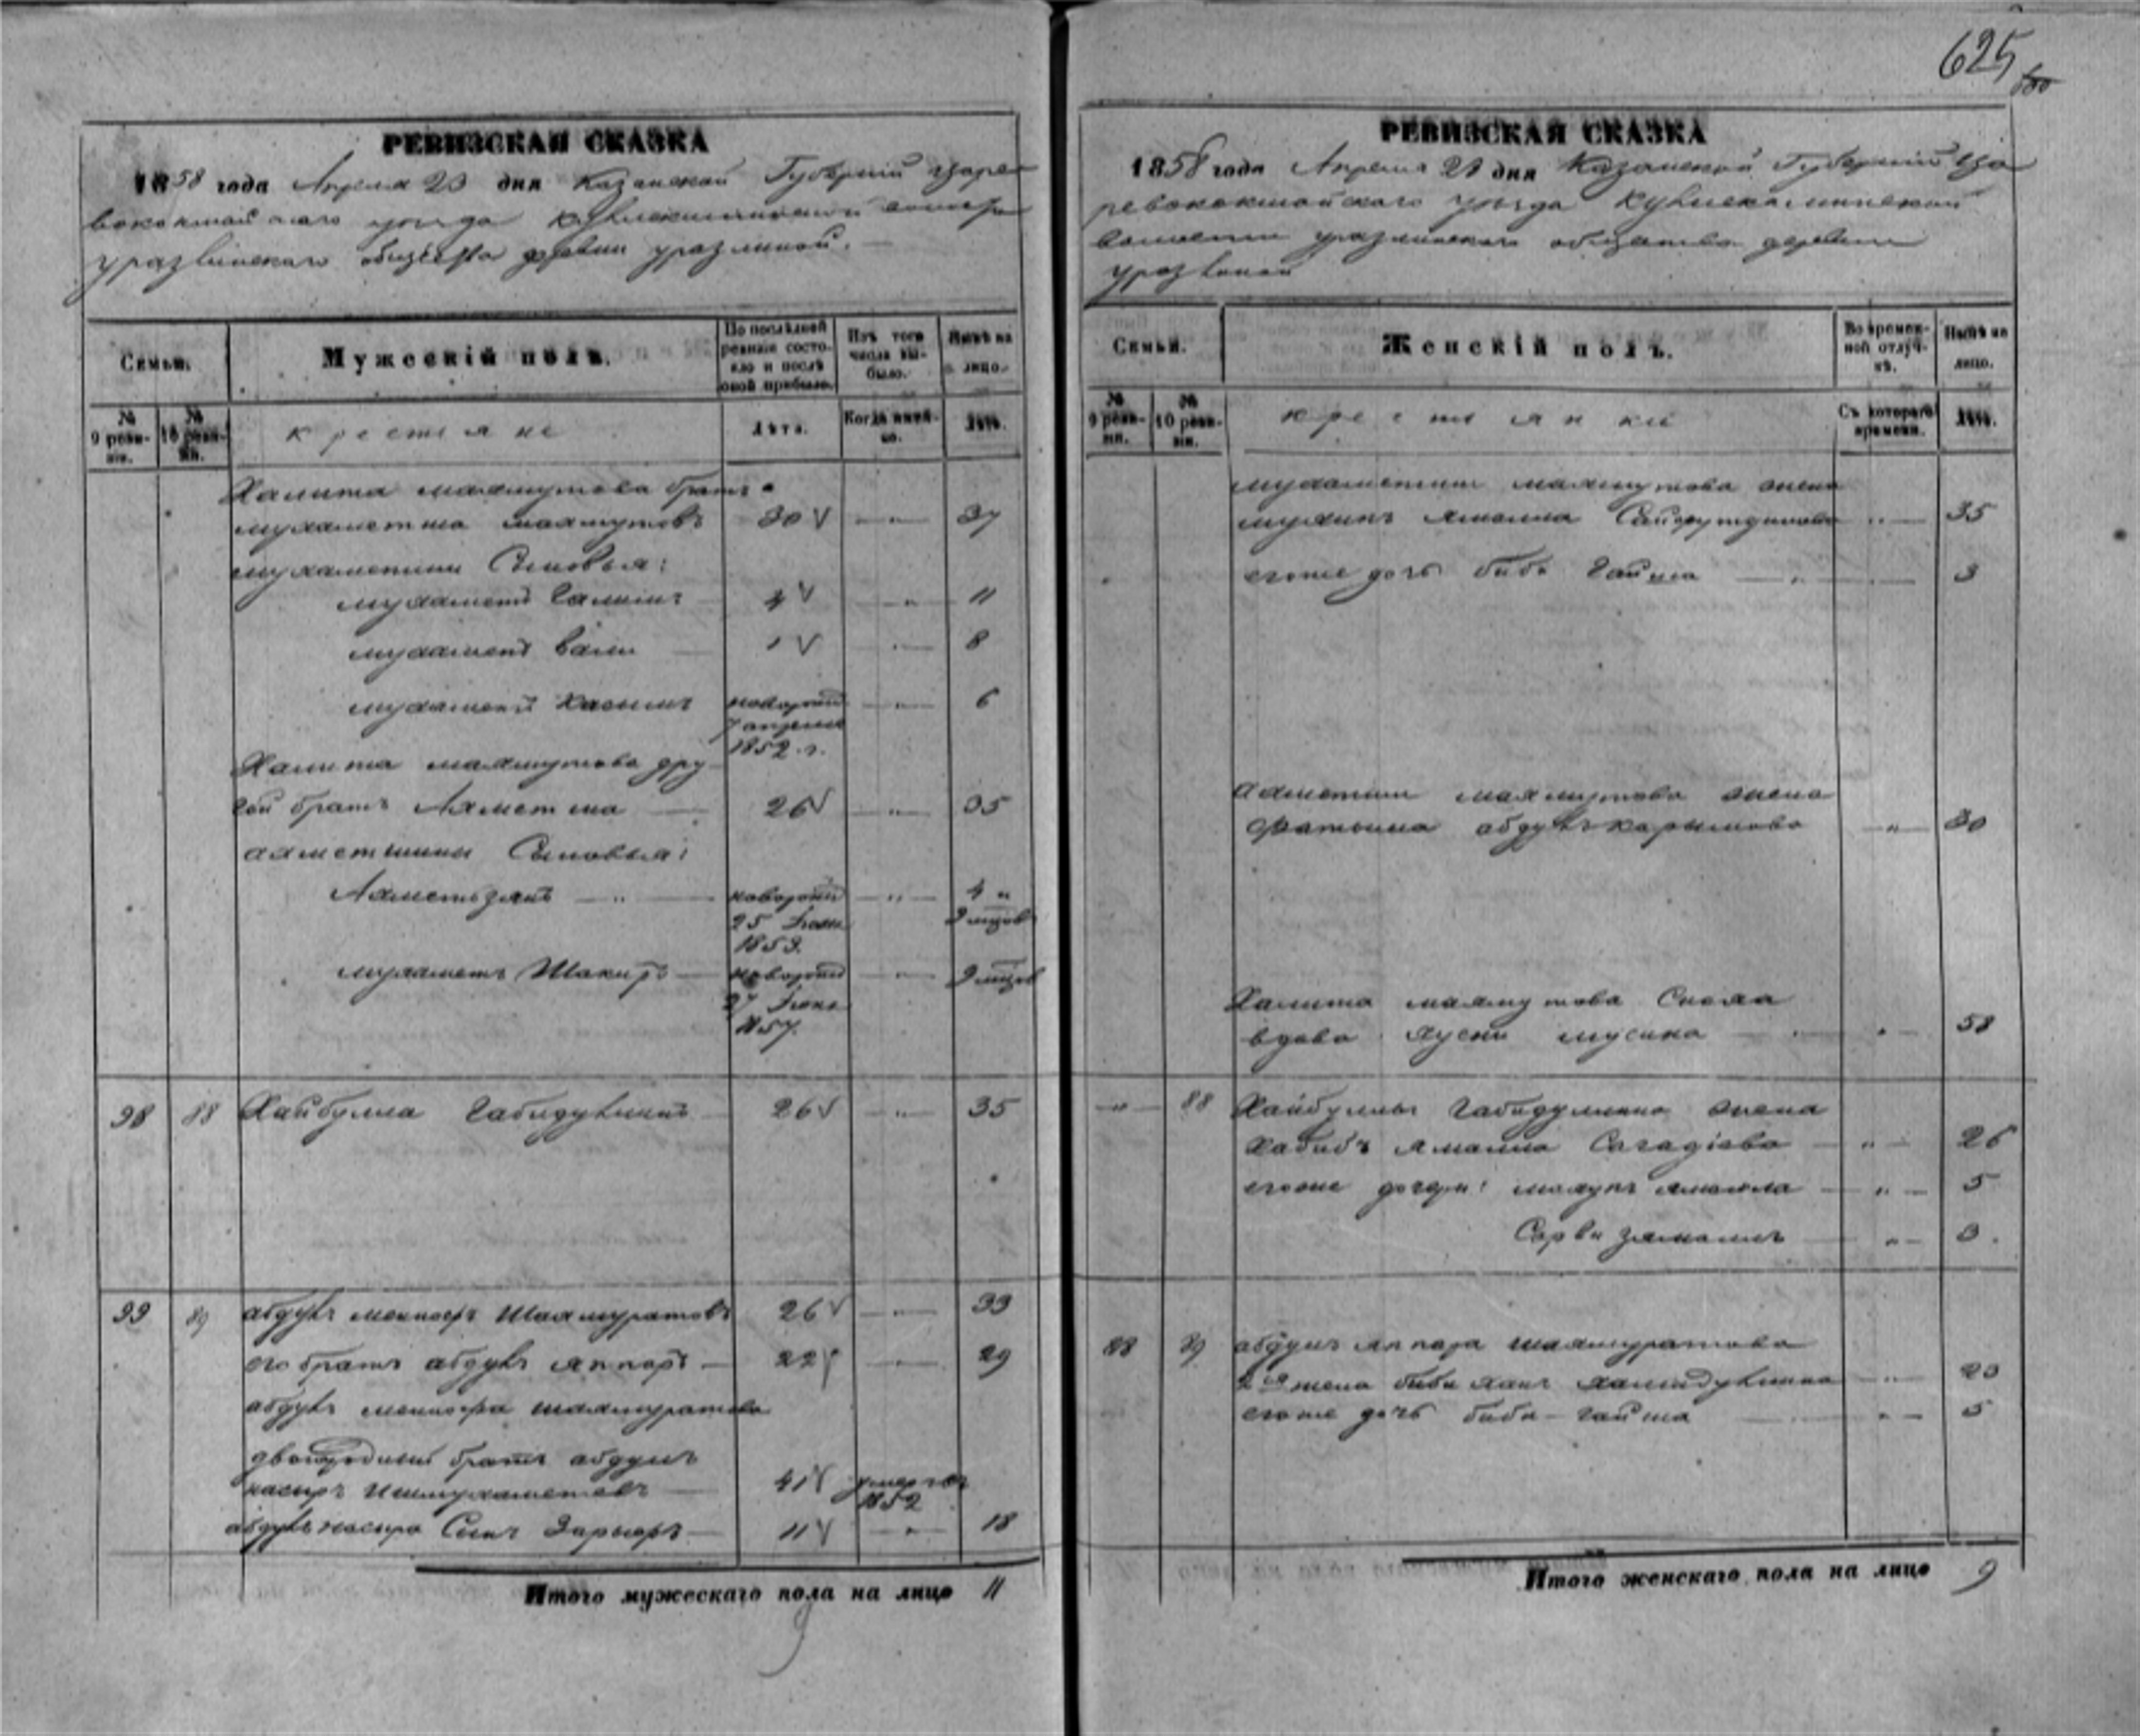 625
РЕВИЗСКАЯ СКАЗКА
1858 года Апреля 23 дня Казанской Губерній Царе
вококшайскаго уезда
общества деревни
Семьи.
Мужескій полъ.
По послѣдней ревизіи состояло и послѣ оной прибыло.
Изъ того числа выбыло.
Нынѣ на лицо.
№ 9 ревизіи.
№ 10 ревизіи.
крестьяне
Лѣта.
Когда именно.
Лѣта.
Халита махмутова братъ
мухаметша махмутовъ 30 — " — 37
мухаметши Сыновья:
мухаметъ Галимъ 4 — " — 11
мухаметъ Вали 1 — " — 8
мухаметъ Касимъ новорожд — " — 6
7 апреля
1852 г.
Халита махмутова дру
гой братъ Ахметша 26 — " — 35
ахметшины Сыновья:
Ахметьзянъ — " — новорожд — " — 4 "
25 1853. 9 мцов
мухаметъ Шакиръ новорожд — " — 9 мцов
27 Июня
1857.
98 88 Хайбулла Габидуллинъ 26 — " — 35
99 89 абдулъ Шахмуратовъ 26 — " — 33
его братъ абдулъ яппаръ 22 — " — 29
абдулъ шахмуратова
двоюродный братъ абдулъ
насыръ Ишмухаметевъ 41 умер въ
1852
абдулъ насыра Сынъ 11 — " — 18
Итого мужескаго пола на лицо 11
9
РЕВИЗСКАЯ СКАЗКА
1858 года Апреля 23 дня Казанской Губерній Ца
ревококшайскаго уезда
волости общества деревни
Семьи.
Женскій полъ.
Во временной отлучкѣ.
Нынѣ на лицо.
№ 9 ревизіи.
№ 10 ревизіи.
крестьянки
Съ котораго времени.
Лѣта.
мухаметши махмутова жена
ямалла Сайфутдинова " — 35
егоже дочь биби Гайша — " — 3
ахметши махмутова жена
Фатыма абдулъ карымова — " — 30
Халита махмутова Сноха
вдова мусина — " — 58
— " — 88 Хайбуллы Габидуллина жена
хабибъ ямалла Сагадіева — " — 26
егоже дочери: ямалла — " — 5
Сарви зямалъ — " — 3.
88 89 абдулъ яппара шахмуратова
2я жена биби — " — 23
егоже дочь биби-гайша — " — 5
Итого женскаго пола на лицо 9